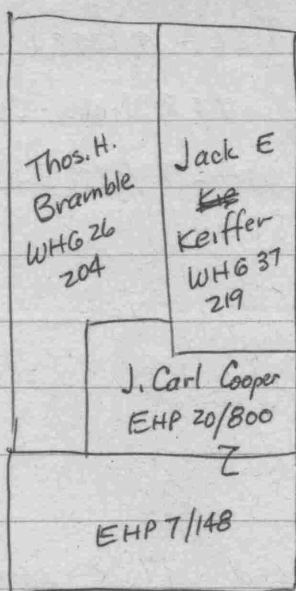 Thos. H.
Bramble
WHG 26
204
Jack E
Keiffer
WHG 37
219
J. Carl Cooper
EHP 20/800
Z
EHP 7/148